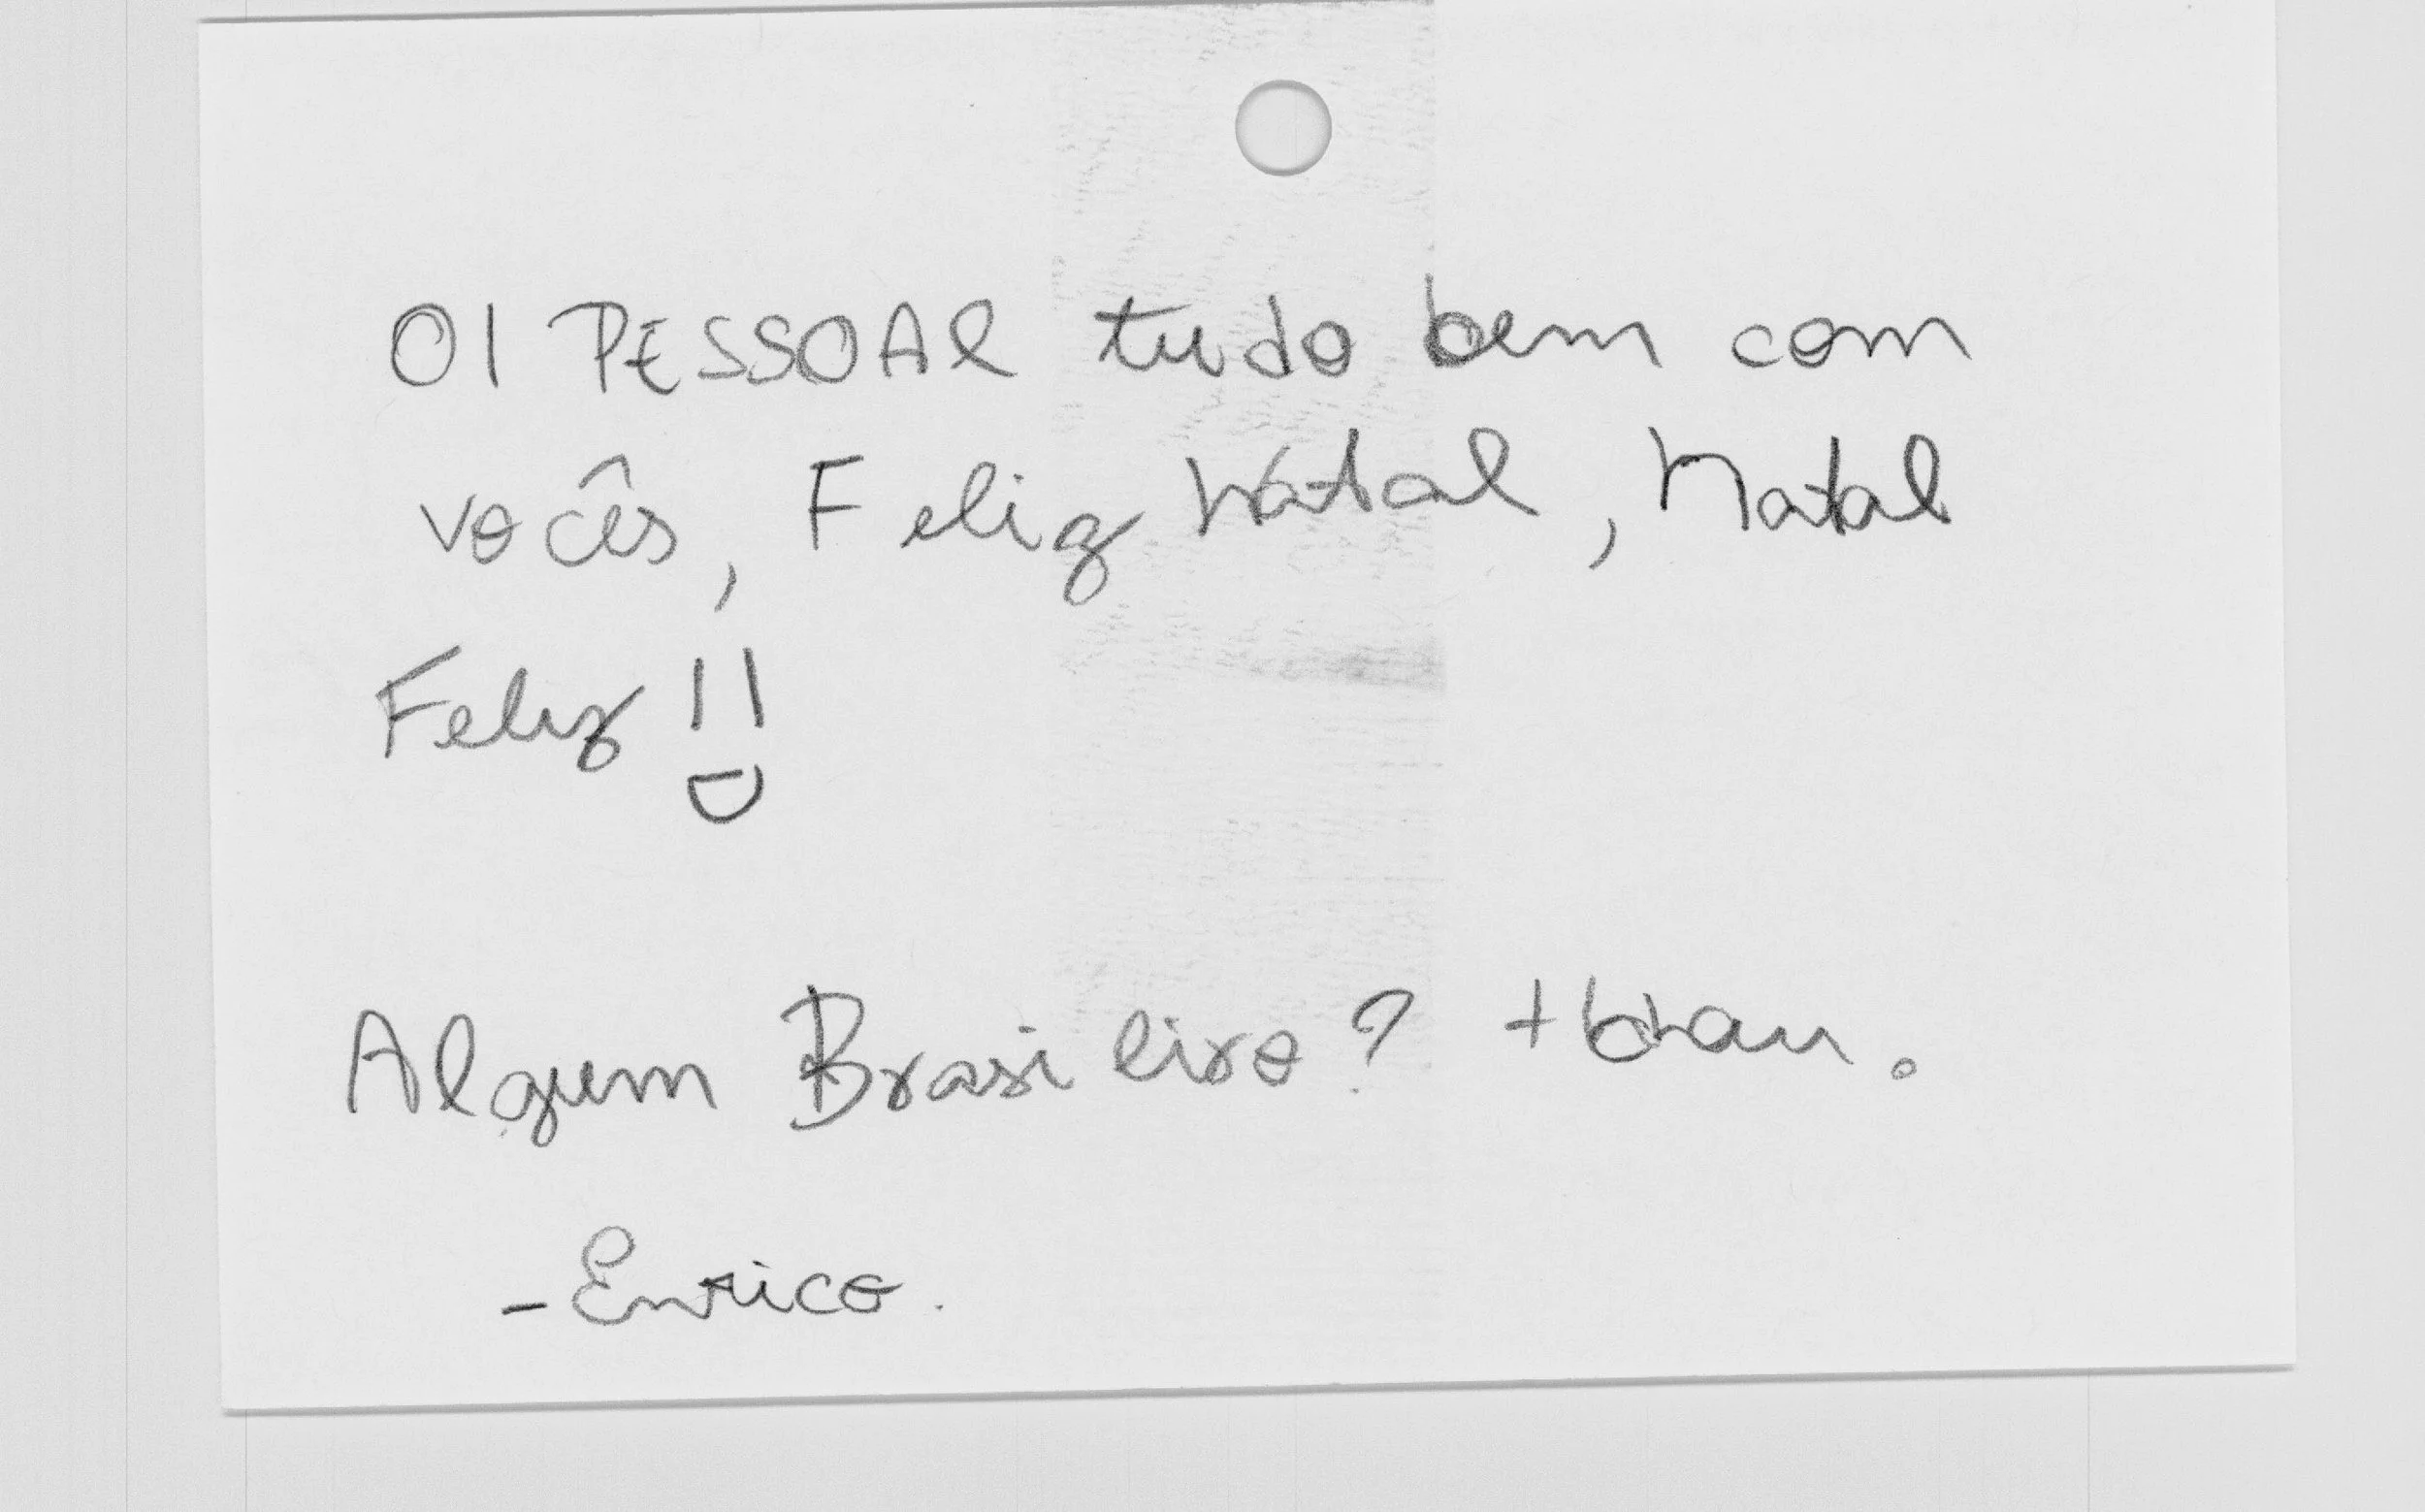 OI PESSOAl tudo bem com
vocês, Feliz Natal, Natal
Feliz !!
Algum Brasiliro?
-Enrico.